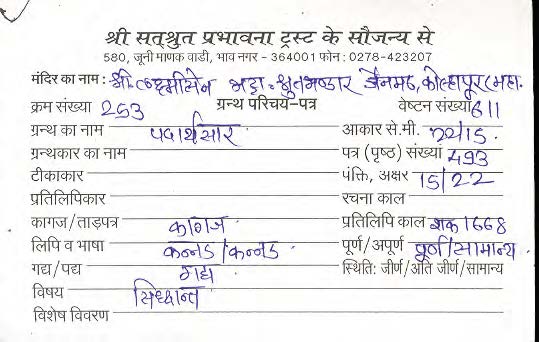 श्री सत्श्रुत प्रभावना ट्रस्ट के सौजन्य से
580, जूनी माणक वाडी, भाव नगर - 364001 फोन : 0278-423207
मंदिर का नाम : श्री. लक्ष्मीसेन भट्टा. श्रुतभण्डार जैनमठ, कोल्हापूर (महा.
क्रम संख्या 253 ग्रन्थ परिचय-पत्र वेष्टन संख्या 611
ग्रन्थ का नाम पदार्थसार आकार से.मी. 22/15.
ग्रन्थकार का नाम पत्र (पृष्ठ) संख्या 493
टीकाकार पंक्ति, अक्षर 15/22
प्रतिलिपिकार रचना काल
कागज/ताड़पत्र कागज प्रतिलिपि काल शक 1668
लिपि व भाषा कन्नड/कन्नड. पूर्ण/अपूर्ण पूर्ण/सामान्य.
गद्य/पद्य गद्य स्थिति: जीर्ण/अति जीर्ण/सामान्य
विषय सिध्धान्त
विशेष विवरण